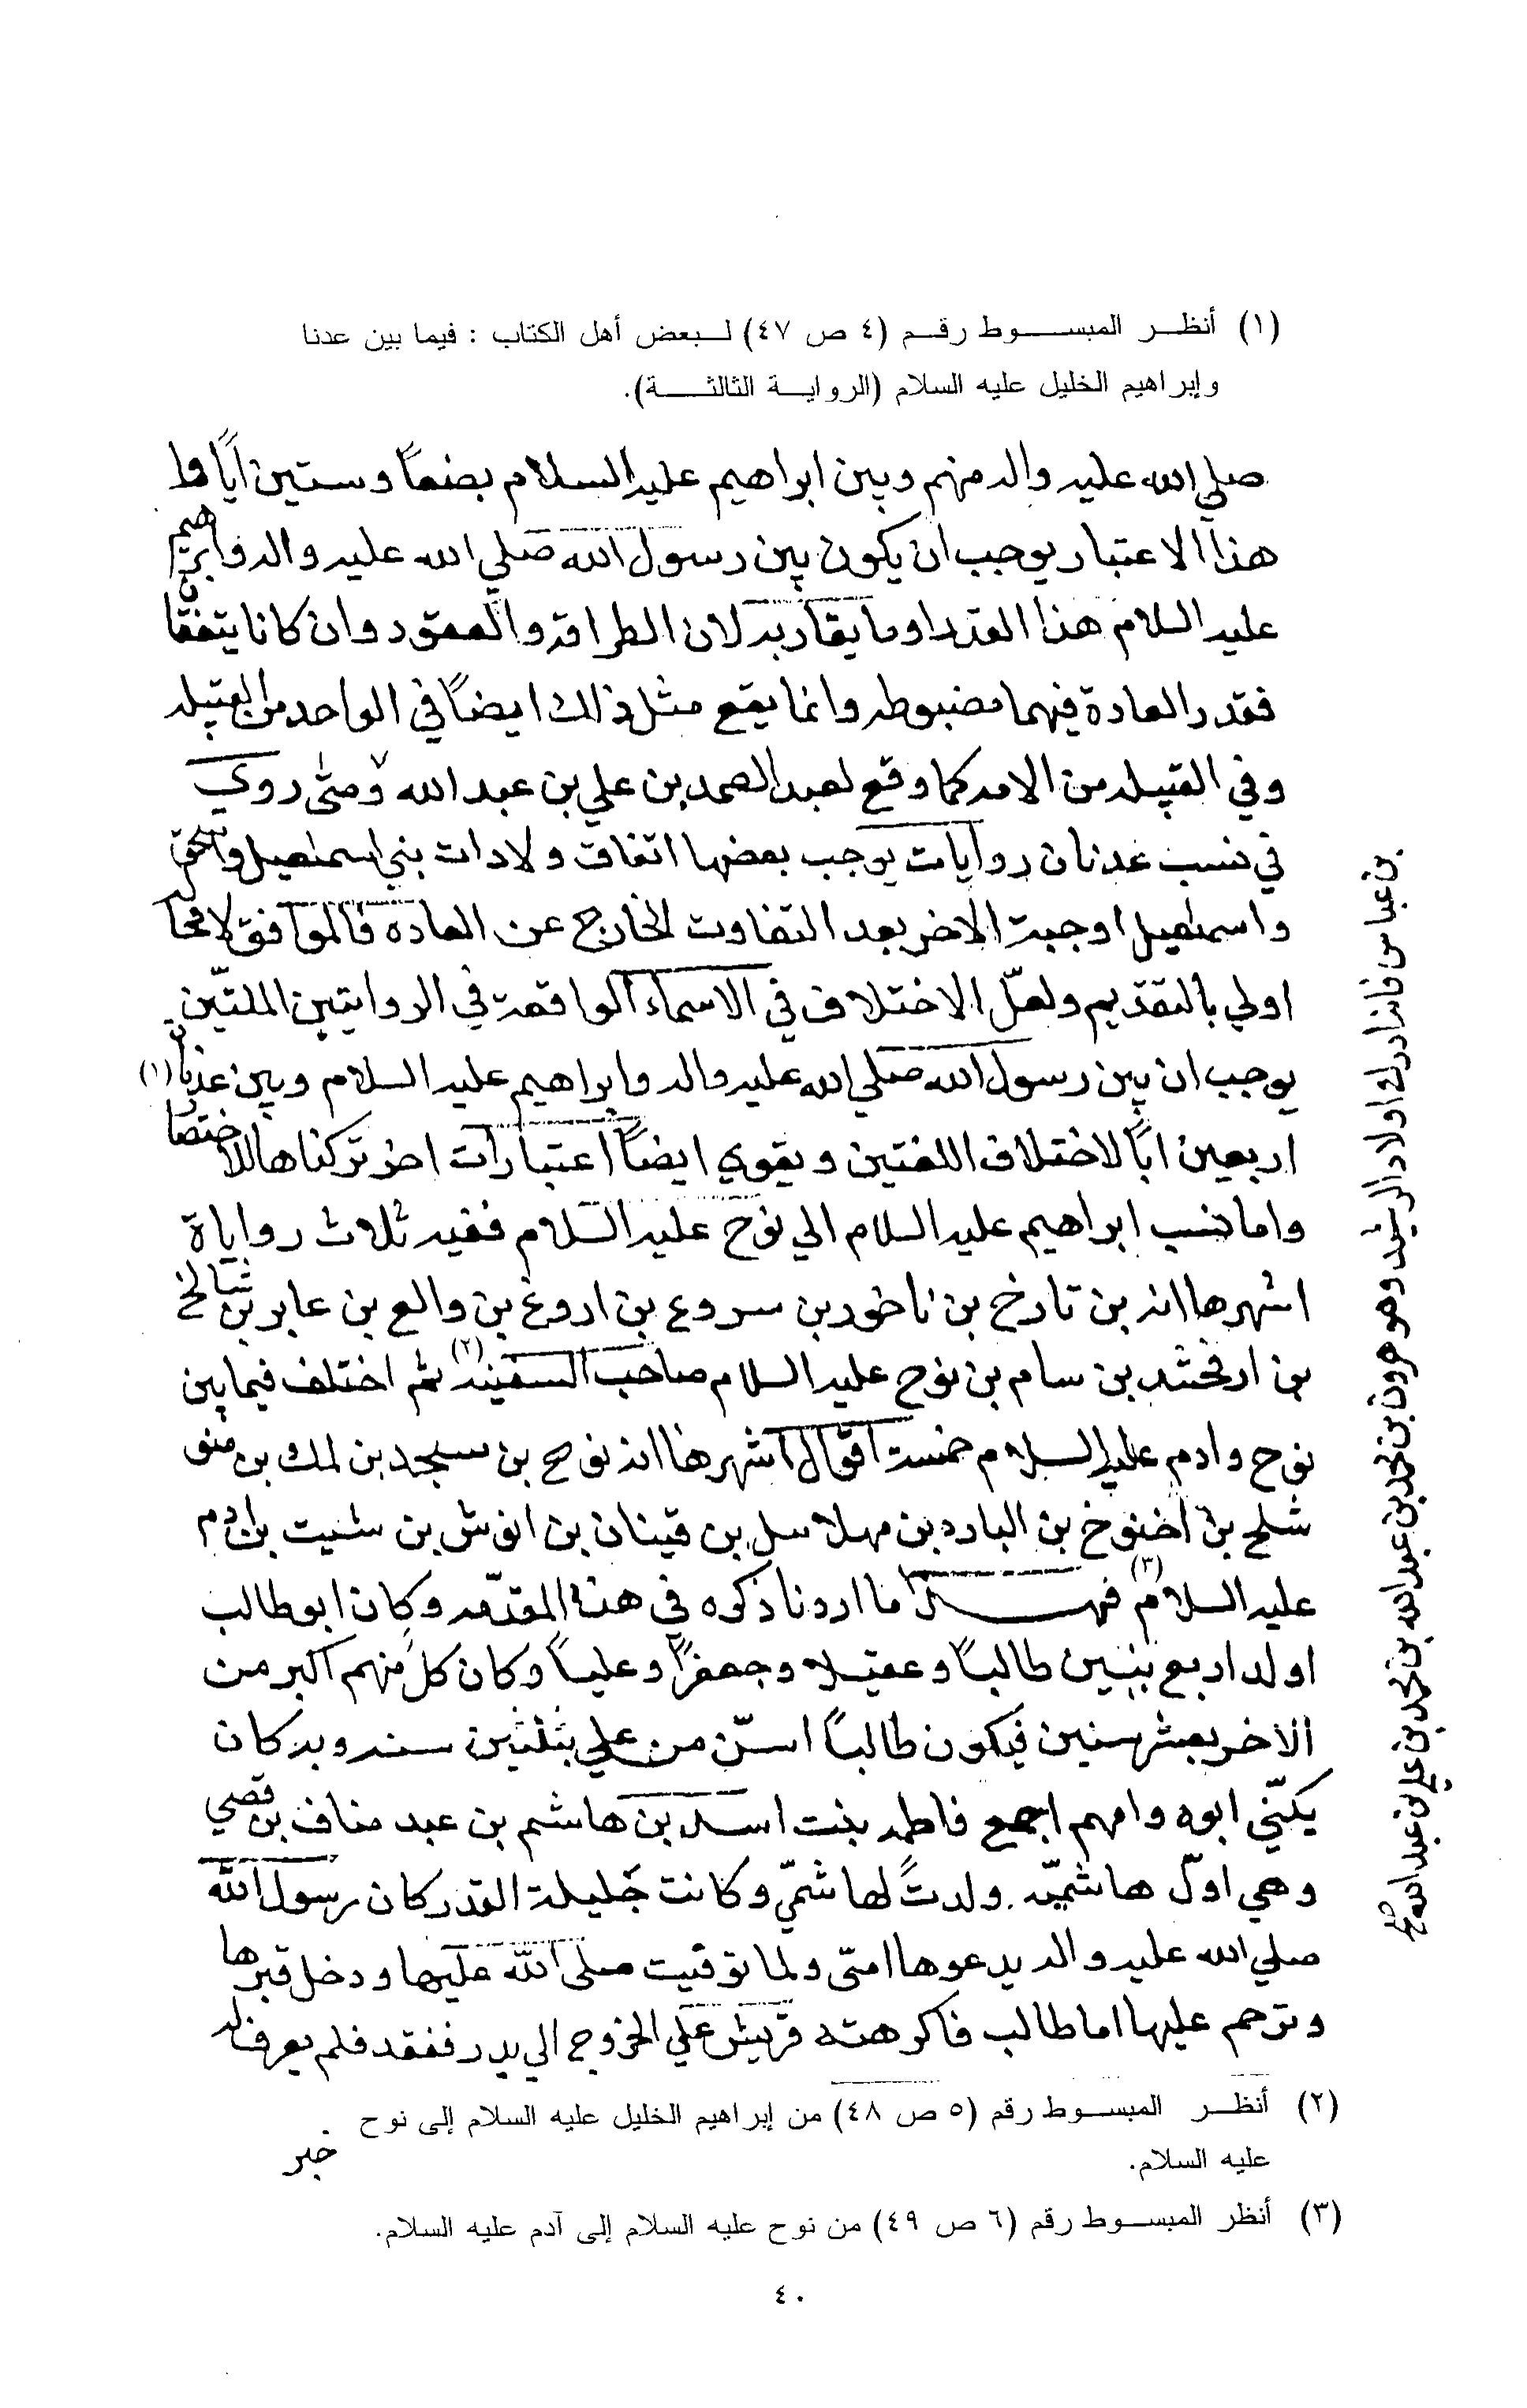 (١) أنظر المبسوط رقم (٤ ص ٤٧) لبعض أهل الكتاب : فيما بين عدنا
وإبراهيم الخليل عليه السلام (الرواية الثالثة).
صلي الله عليه واله منهم وبين ابراهيم عليه السلام بضعاً وستين اباً وط
هذا الاعتبار يوجب ان يكون بين رسول الله صلي الله عليه واله وابرهيم
عليه السلام هذا العدد او ما يقاربه لان الطرافة والعقود وان كانا يتفقا
فقدر العادة فيهما مضبوطه وانما يقع مثل ذالك ايضاً في الواحد من القبيله
وفي القبيله من الامه كما وقع لعبد الصمد بن علي بن عبد الله ومتى روي
في نسب عدنان روايات يوجب بعضها اتفاق ولادات بني اسمعيل واسحق
واسمعيل اوجبت الاخر بعد التفاوت الخارج عن العاده فالموافق لا محا
اولي بالتقديم ولعلّ الاختلاف في الاسماء الواقعة في الروايتين الملتّين
يوجب ان بين رسول الله صلي الله عليه واله وابراهيم عليه السلام وبين عدنان (١)
اربعين اباً لاختلاف اللغتين ويقوي ايضاً اعتبارات اخر تركناها للاختصا
واما نسب ابراهيم عليه السلام الي نوح عليه السلام ففيه ثلاث رواياة
اشهرها انه بن تارخ بن ناخور بن سروع بن اروغ بن والع بن عابر بن شالخ
بن ارفخشد بن سام بن نوح عليه السلام صاحب السفينه (٢) ثم اختلف فيما بين
نوح وادم عليه السلام خمسة اقوال اشهرها انه نوح بن سبجد بن لمك بن متو
شلح بن اخنوخ بن الباره بن مهلاسل بن قينان بن انوش بن شيت بن ادم
عليه السلام (٣) فهذا ما اردنا ذكره في هذه المقدّمه وكان ابو طالب
اولد اربع بنين طالباً وعقيلا وجعفراً وعلياً وكان كل منهم اكبر من
الاخر بعشر سنين فيكون طالباً اسنّ من علي بثلثين سنه وبه كان
يكنّي ابوه وامهم اجمع فاطمه بنت اسد بن هاشم بن عبد مناف بن قصي
وهي اوّل هاشميّه ولدتً لهاشميّ وكانت جليلة القدر كان رسول الله
صلي الله عليه واله يدعوها امّى ولما توفيت صلى الله عليها ودخل قبرها
وترحم عليها اما طالب فاكرهته قريش علي الخروج الي بدر ففقد فلم يعرف له
خبر
بن عباس فانه ادرك اولاد الرشيد وهو هرون بن محمد بن عبد الله بن محمد بن علي بن عبد الله صح
(٢) أنظر المبسوط رقم (٥ ص ٤٨) من إبراهيم الخليل عليه السلام إلى نوح
عليه السلام.
(٣) أنظر المبسوط رقم (٦ ص ٤٩) من نوح عليه السلام إلى آدم عليه السلام.
٤٠